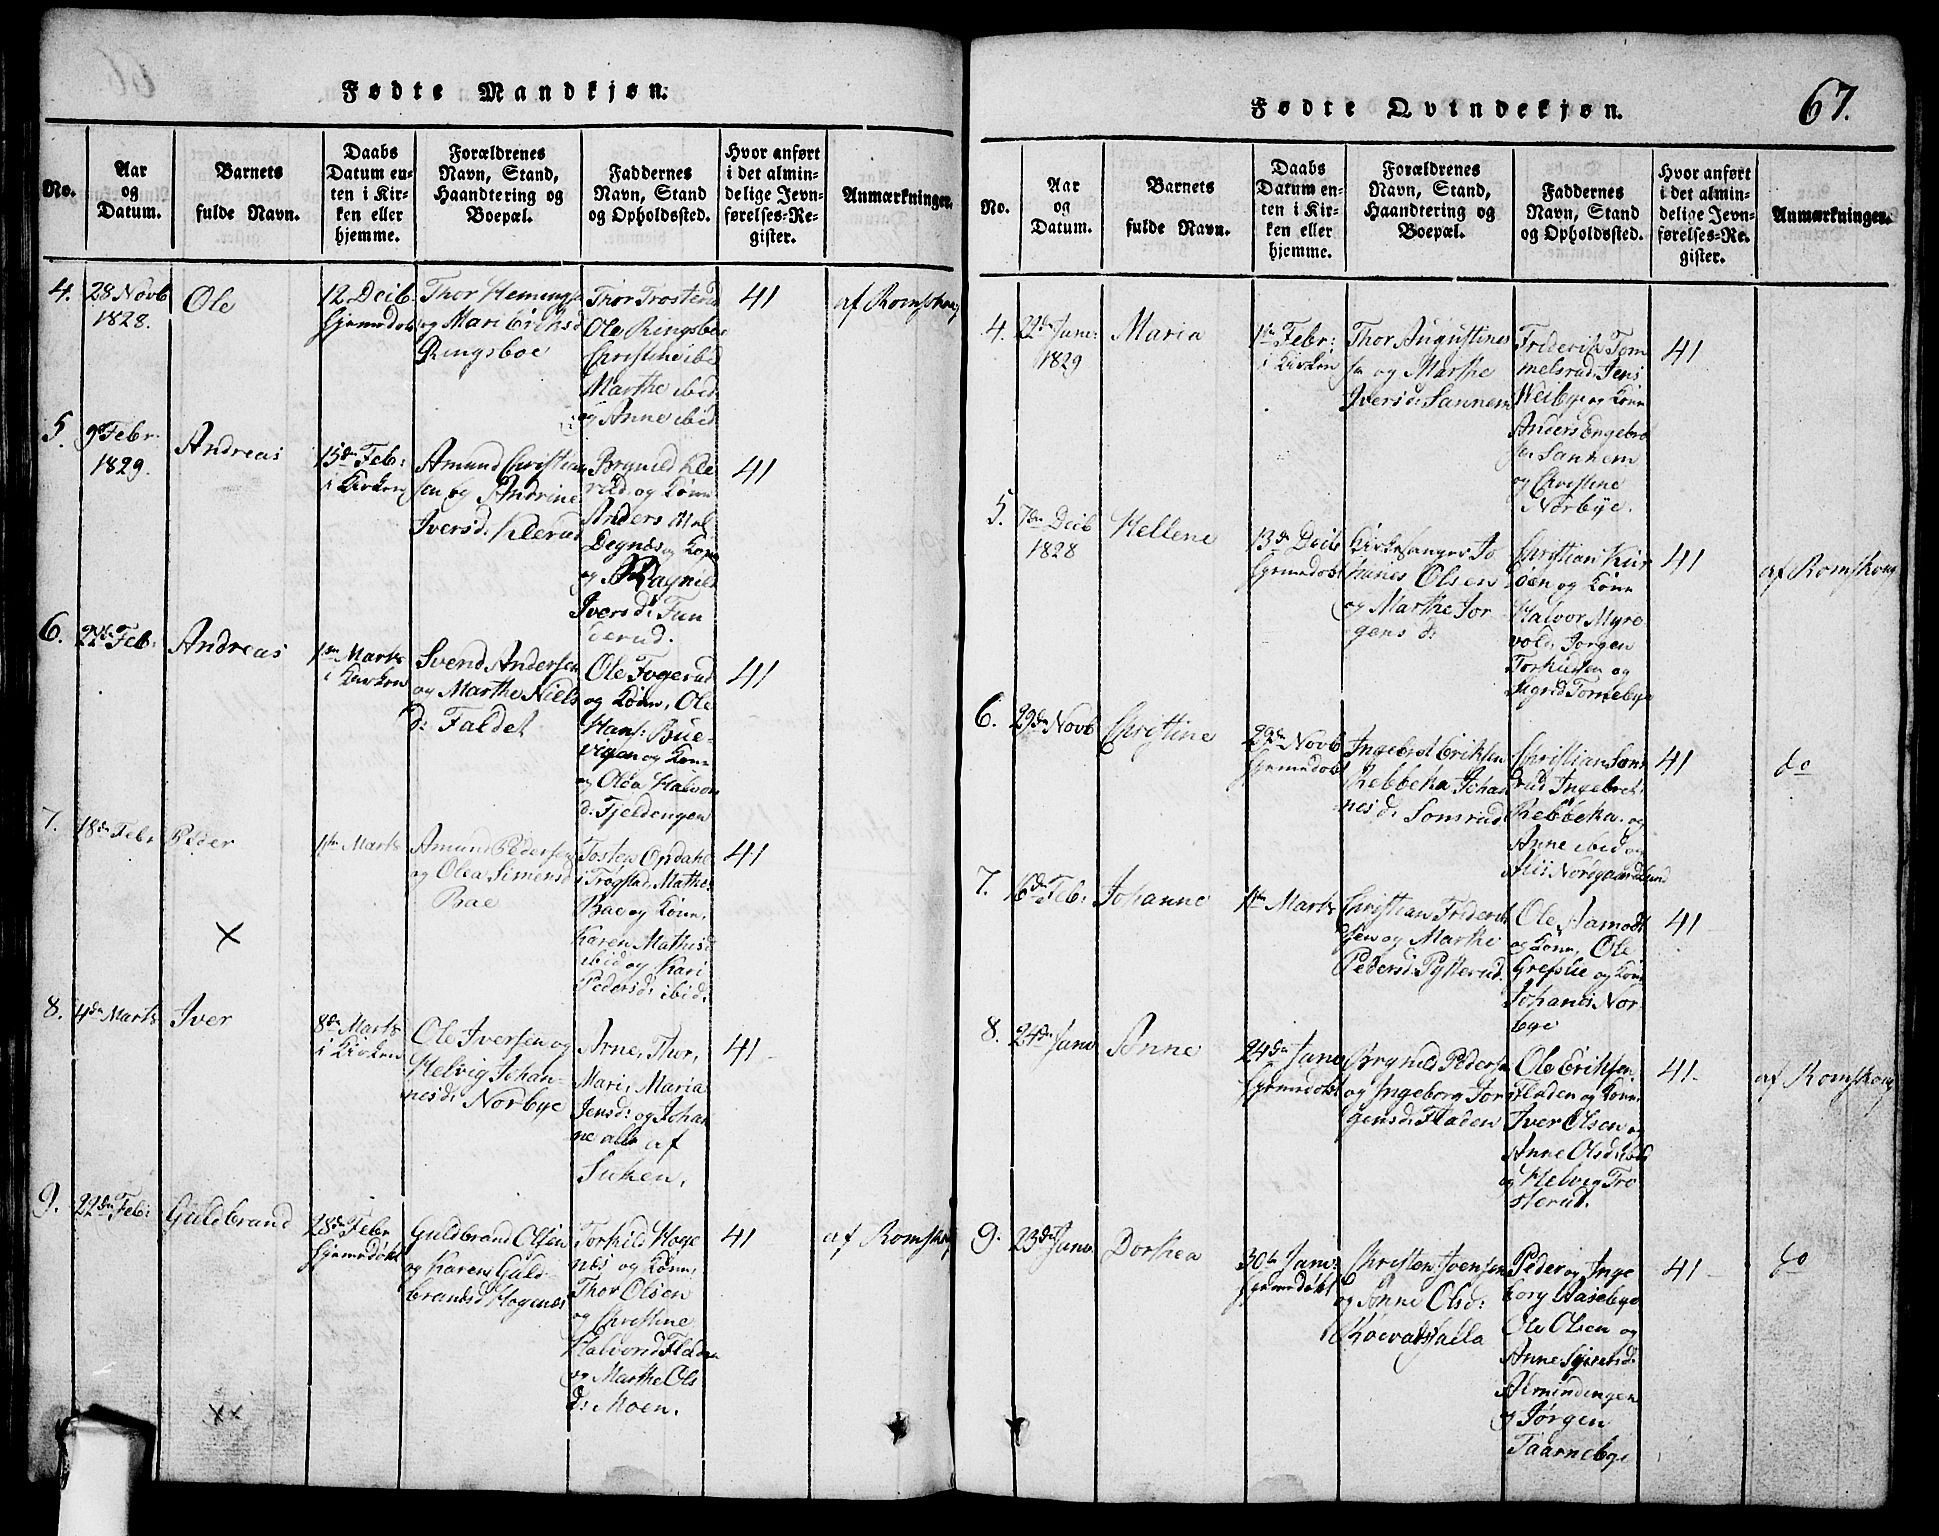 Fødte Mandkjøn.
No.
Aar
og
Datum.
Barnets
fulde Navn.
Daabs
Datum en-
ten i Kir-
ken eller
hjemme.
Forældrenes
Navn, Stand,
Haandtering og
Boepæl.
Faddernes
Navn, Stand
og Opholdssted.
Hvor anført
i det almin-
delige Jevn-
førelses-Re-
gister.
Anmærkninger.
4.
28 Novb
1828.
Ole
12. Decb.
hjemedøbt
Thor Hemings
og Mari Eriksd
Ringsboe
Thor Trosterud
Ole Ringsboe
Christine ibid
Marthe ibid
og Anne ibid
41
af Romskoug
5.
9de Febr.
1829.
Andreas
15de Feb:
i Kirken
Amund Christian
sen og Andrine
Iversd: Klerud
Brynild Kle
rud og Kone
Anders Mel
Degnæs og Kone
og Ragnild
Iversd: Fun
derud.
41
6.
22de Feb:
Andreas
1ste Marts
i Kirken
Svend Andersen
og Marthe Niels
d: Faldet
Ole Fogerud
og Kone, Ole
Hans: Bue-
vigen og Kone
og Olea Halvors
d: Fjeldengen
41
7.
18de Febr
Peder
1ste Marts
Amund Peders
og Olea Simensd
Bae
Tosten Opdahl
i Trøgstad, Mathis
Bae og Kone,
Karen Mathisd
ibid og Kari
Pedersd: ibid:
41
X
8.
4de Marts
Iver
8de Marts
i Kirken
Ole Iversen og
Helvig Johan-
nesd: Norbye
Arne, Thor,
Mari, Maria
Jensd: og Johan
ne alle af
Suken,
41
9.
22de Feb:
Guldbrand
28de Febr
hjemedøbt
Guldbrand Olsen
og Karen Guld
brandsd Hogenæs
Torkild Hoge
næs og Kone,
Thor Olsen
og Christine
Halvorsd Fladen
og Marthe Ols
d: Moen.
41
af Romskoug
xx
Fødte Qvindekjøn.
67.
No.
Aar
og
Datum.
Barnets
fulde Navn.
Daabs
Datum en-
ten i Kir-
ken eller
hjemme.
Forældrenes
Navn, Stand,
Haandtering og
Boepæl.
Faddernes
Navn, Stand
og Opholdssted.
Hvor anført
i det almin-
delige Jevn-
førelses-Re-
gister.
Anmærkninger.
4.
22de Janr:
1829
Maria
1ste Febr:
i Kirken
Thor Augustines
sen og Marthe
Iversd: Sannem
Friderik Tom
melsrud, Jens
Weibye og Kone
Anders Engebret
sen Sannem
og Christine
Norbye.
41
5.
7de Decb
1828
Hellene
13de Decb
hjemedøbt
Kirkesanger Jo
hanes Olsen
og Marthe Jor
gens d:
Christian Kur
øen og Kone
Halvor Myre
vold, Jorgen
Torkilden og
Sigrid Tornebye
41
af Romskoug
6.
29de Novb
Christine
29de Novb
hjemedøbt
Ingebret Eriksen
Rebbeka Johan
nesd: Somrud
Christian Som
rud Ingebret:
Rebbeka og
Anne ibid og
Alis Norgaardslund
41
do
7.
16de Feb:
Johanne
1ste Marts
Christian Friderik
sen og Marthe
Pedersd: Pytterud.
Ole Hamodt
og Kone, Ole
Grefslie og Kone
Johanes Nor-
bye
41
8.
24de Janr
Anne
24de Janr
hjemedøbt
Brynild Peders
og Ingeborg Jor
gensd: Fladen
Ole Eriksen
Fladen og Kone
Iver Olsen og
Anne Olsd: ibid
og Helvig Tro
sterud.
41
af Romskoug
9.
23de Janr
Dorthea
30te Janr:
hjemedøbt
Christen Joensen
og Anne Olsd:
Peder og Inge
borg Aasebye
Ole Olsen og
Anne
Almindingen
og Jørgen
Taarnebye
41
do